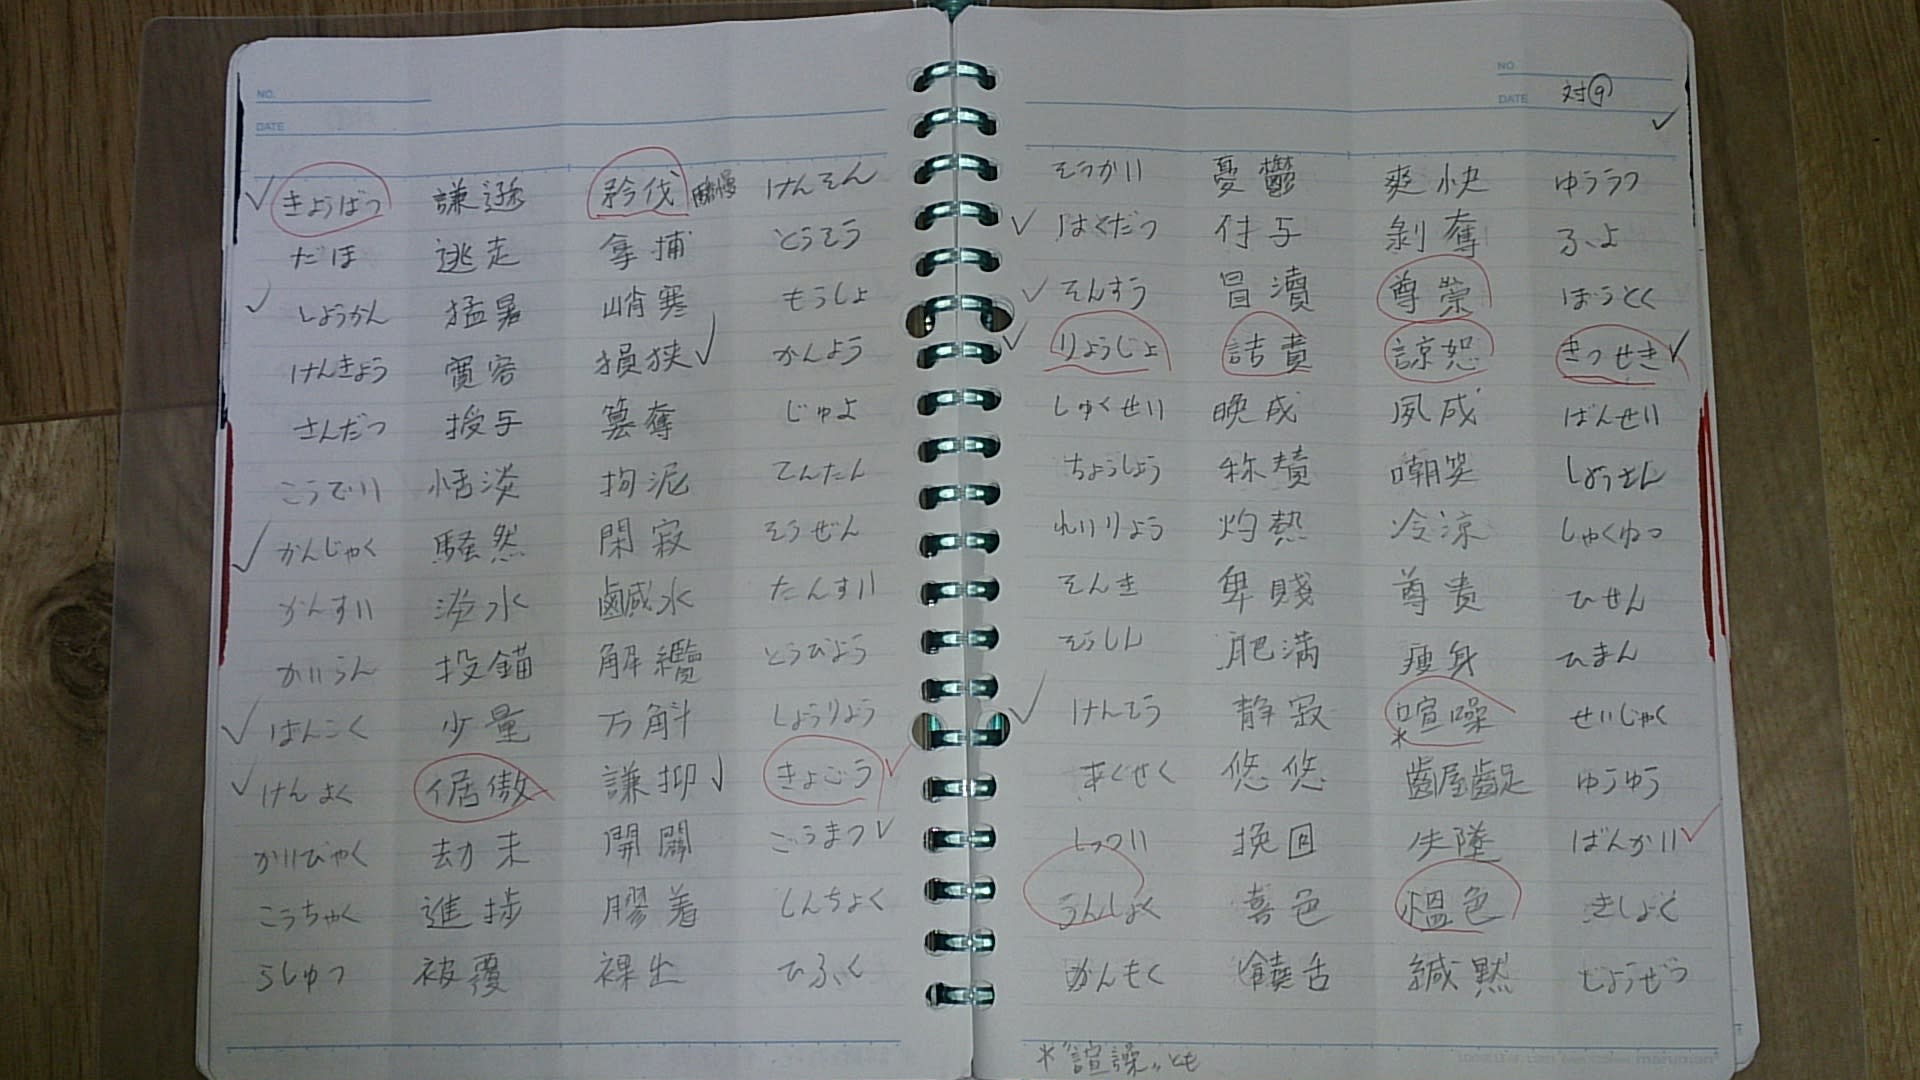 NO.
DATE
きょうばつ 謙遜 矜伐 けんそん
だほ 逃走 拿捕 とうそう
しょうかん 猛暑 峭寒 もうしょ
けんきょう 寛容 狷狭 かんよう
さんだつ 授与 簒奪 じゅよ
こうでい 恬淡 拘泥 てんたん
かんじゃく 騒然 閑寂 そうぜん
かんすい 淡水 鹹水 たんすい
かいらん 投錨 解纜 とうびょう
ばんこく 少量 万斛 しょうりょう
けんよく 倨傲 謙抑 きょごう
かいびゃく 劫末 開闢 ごうまつ
こうちゃく 進捗 膠着 しんちょく
らしゅつ 被覆 裸出 ひふく
NO
DATE 対⑨
そうかい 憂鬱 爽快 ゆううつ
はくだつ 付与 剝奪 ふよ
そんすう 冒瀆 尊崇 ぼうとく
りょうじょ 詰責 諒恕 きっせき
しゅくせい 晩成 夙成 ばんせい
ちょうしょう 称賛 嘲笑 しょうさん
れいりょう 灼熱 冷涼 しゃくねつ
そんき 卑賤 尊貴 ひせん
そうしん 肥満 痩身 ひまん
けんそう 静寂 喧噪 せいじゃく
*
あくせく 悠悠 齷齪 ゆうゆう
しっつい 挽回 失墜 ばんかい
うんしょく 喜色 慍色 きしょく
かんもく 饒舌 緘黙 じょうぜつ
*"諠譟"とも